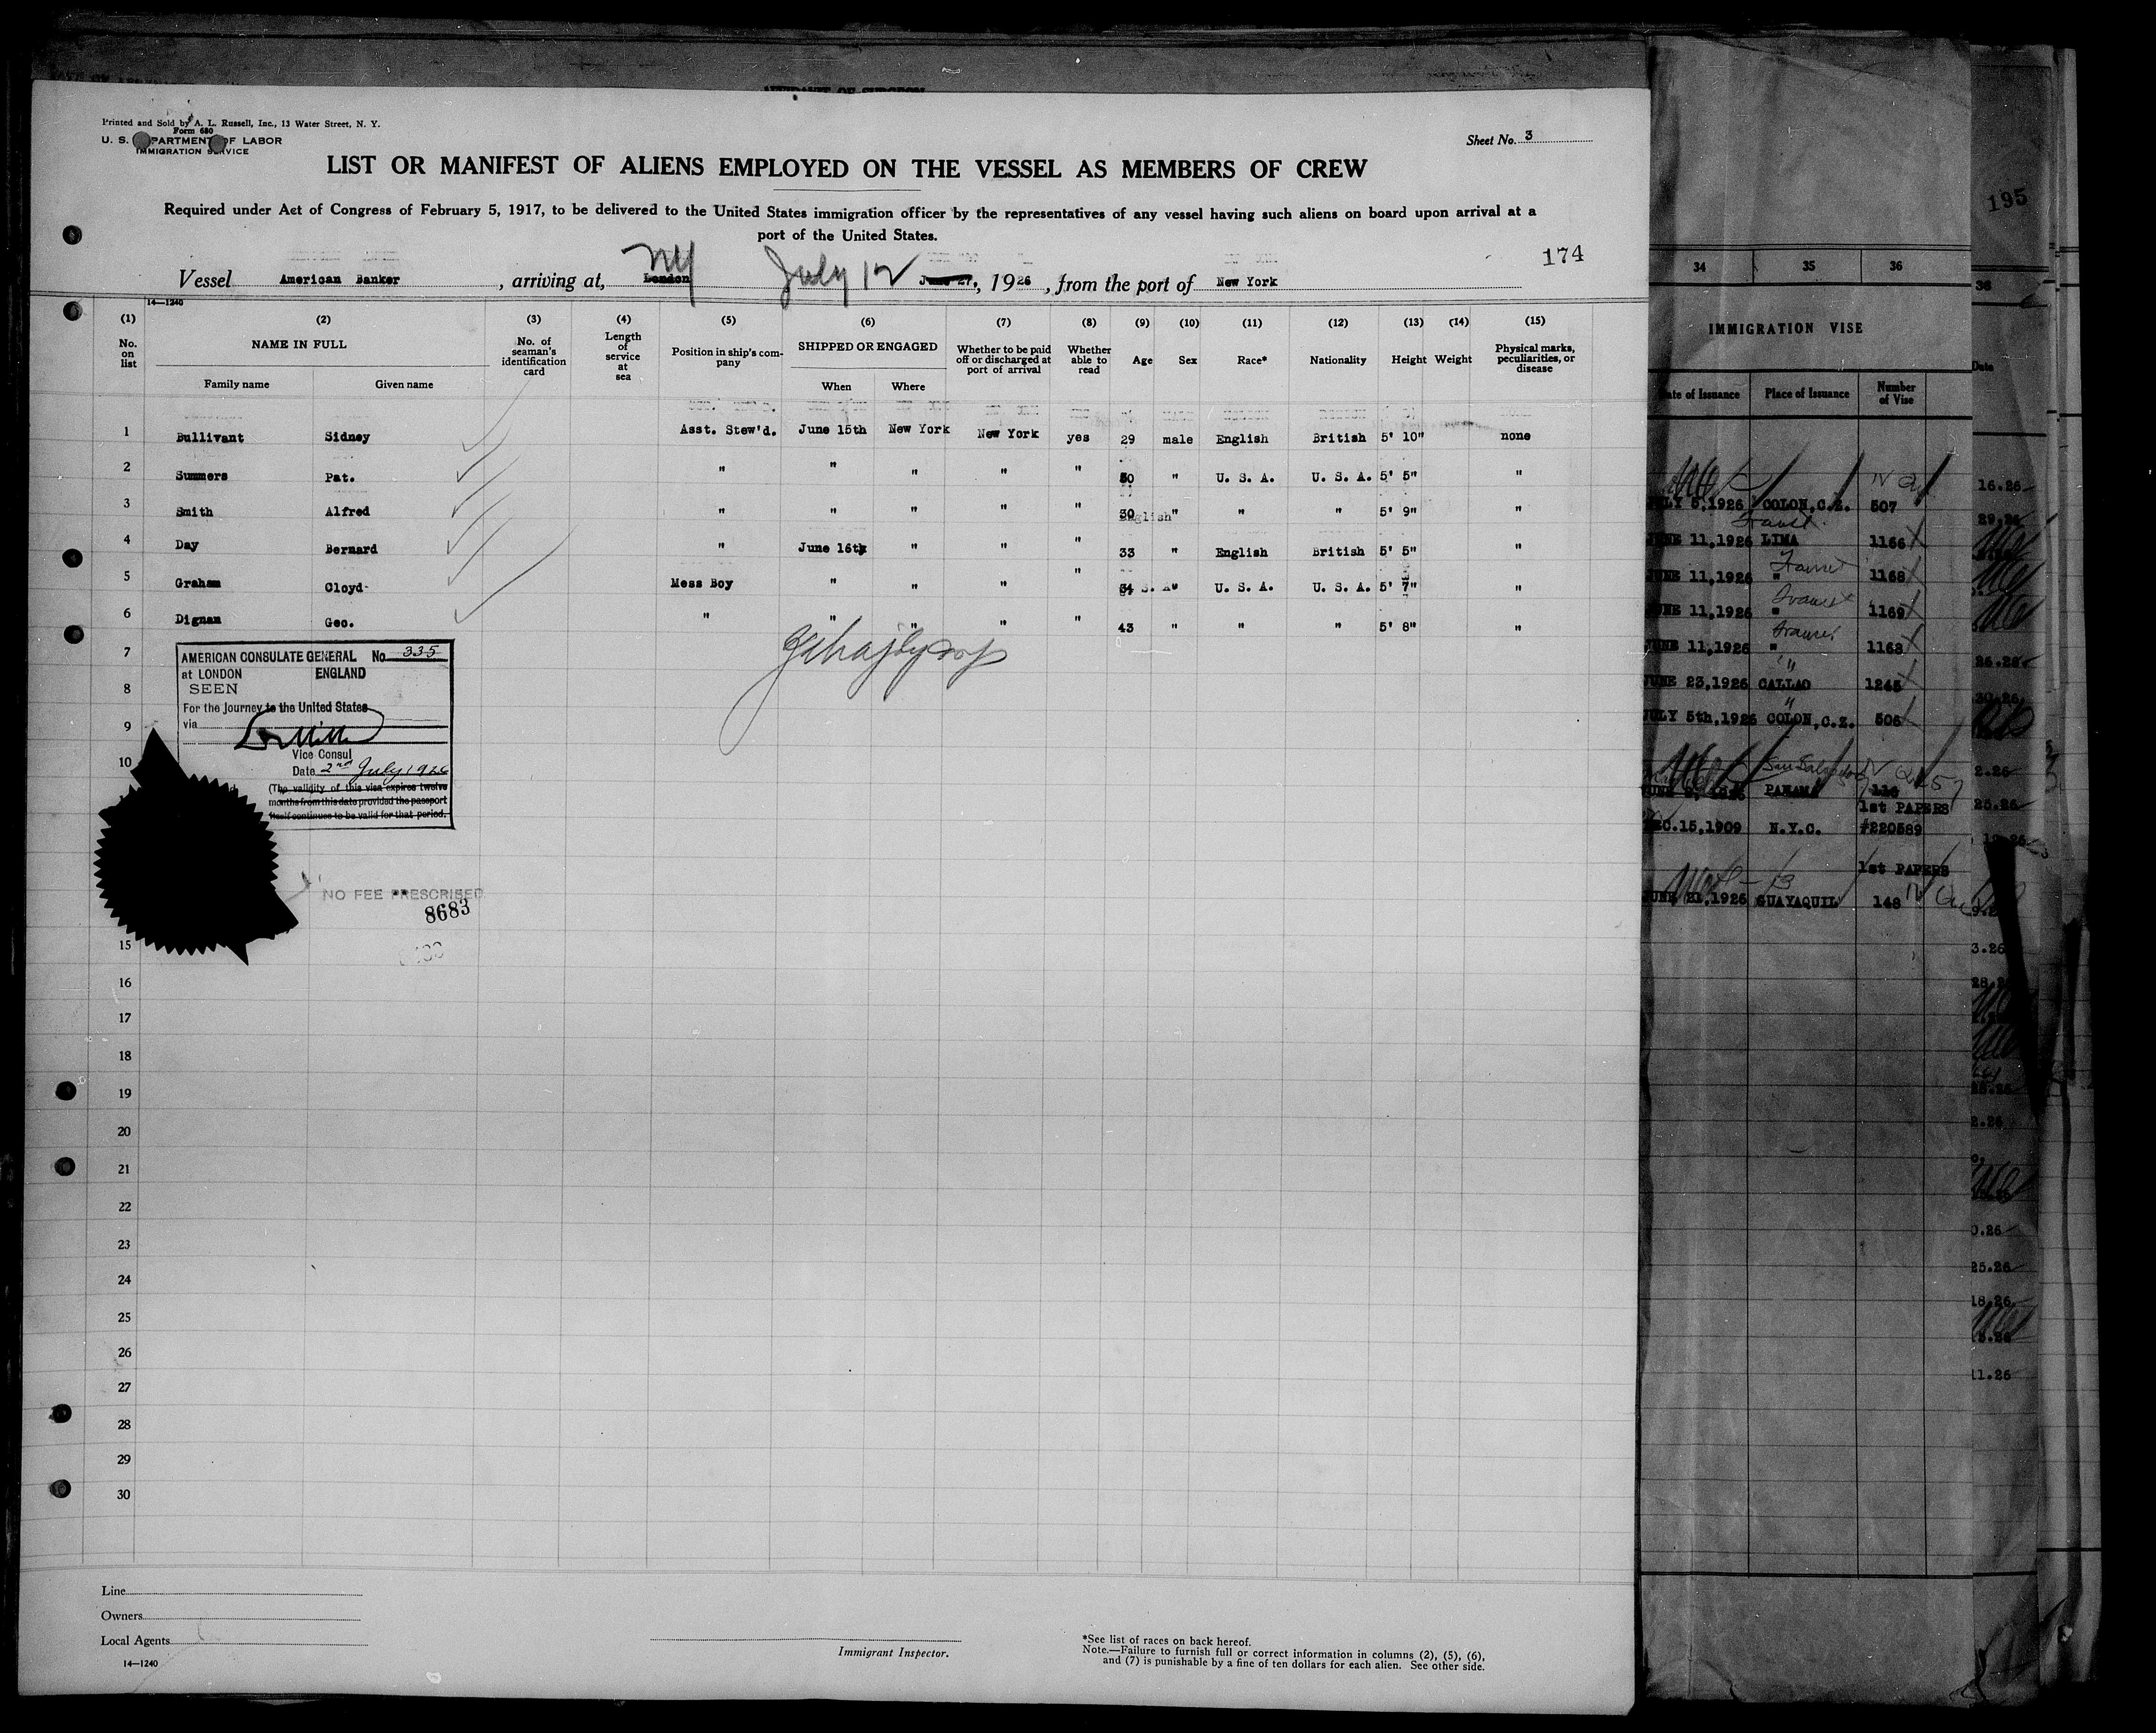 Printed and Sold by A. L. Russell, Inc., 13 Water Street, N. Y.
Form 680
U. S. DEPARTMENT OF LABOR
IMMIGRATION SERVICE
Sheet No. 3
LIST OR MANIFEST OF ALIENS EMPLOYED ON THE VESSEL AS MEMBERS OF CREW
Required under Act of Congress of February 5, 1917, to be delivered to the United States immigration officer by the representatives of any vessel having such aliens on board upon arrival at a
port of the United States.
174
Vessel American Banker, arriving at, London NY July 12 June 27, 1926, from the port of New York
14—1240
(1) (2) (3) (4) (5) (6) (7) (8) (9) (10) (11) (12) (13) (14) (15)
No. on list
NAME IN FULL
Family name Given name
No. of seaman's identification card
Length of service at sea
Position in ship's company
SHIPPED OR ENGAGED
When Where
Whether to be paid off or discharged at port of arrival
Whether able to read
Age Sex Race* Nationality Height Weight
Physical marks, peculiarities, or disease
1 Bullivant Sidney Asst. Stew'd. June 15th New York New York yes 29 male English British 5' 10" none
2 Summers Pat. " " " " " 50 " U. S. A. U. S. A. 5' 5" "
3 Smith Alfred " " " " " 30 " " " 5' 9" "
4 Day Bernard " June 16th " " " 33 " English British 5' 5" "
5 Graham Cloyd Mess Boy " " " " 34 " U. S. A. U. S. A. 5' 7" "
6 Dignan Geo. " " " " " 43 " " " 5' 8" "
7
8
9
10
15
16
17
18
19
20
21
22
23
24
25
26
27
28
29
30
AMERICAN CONSULATE GENERAL No. 335
at LONDON ENGLAND
SEEN
For the Journey to the United States
via
Vice Consul
Date 2nd July 1926
(The validity of this visa expires twelve
months from this date provided the passport
itself continues to be valid for that period.
NO FEE PRESCRIBED
8683
Line
Owners
Local Agents
14—1240
Immigrant Inspector.
*See list of races on back hereof.
Note.—Failure to furnish full or correct information in columns (2), (5), (6),
and (7) is punishable by a fine of ten dollars for each alien. See other side.
195
34 35 36
36
IMMIGRATION VISE
Date of Issuance Place of Issuance Number of Vise
Date
JULY 5,1926 COLON, C.Z. 507
JUNE 11,1926 LIMA 1166
JUNE 11,1926 " 1168
JUNE 11,1926 " 1169
JUNE 11,1926 " 1163
JUNE 23,1926 CALLAO 1245
JULY 5th,1926 COLON, C.Z. 506
San Salvador
PANAMA
1st PAPERS
DEC.15,1909 N.Y.C. #220589
1st PAPERS
JUNE 21,1926 GUAYAQUIL 148